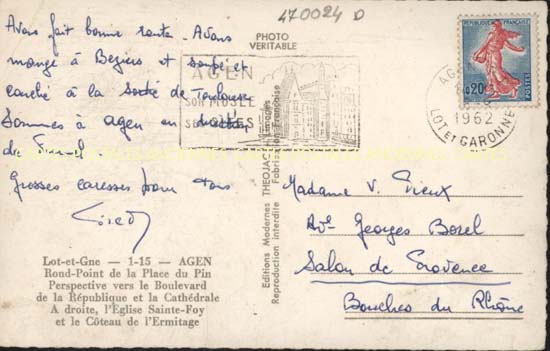 470024 D
Avons fait bonne route. Avons
mangé à Beziers et soupé et
couché à la Sortie de Toulouse
Sommes à agen en
de
Grosses caresses pour tous
PHOTO
VERITABLE
AGEN
SON MUSÉE
REPUBLIQUE FRANÇAISE
0,20
POSTES
1962
LOT ET GARONNE
Editions Modernes THEOJAC, Limoges
Reproduction interdite Fabrication Française
Madame V. Vieux
Av. Georges Borel
Salon de Provence
Bouches du Rhône
Lot-et-Gne — 1-15 — AGEN
Rond-Point de la Place du Pin
Perspective vers le Boulevard
de la République et la Cathédrale
A droite, l'Eglise Sainte-Foy
et le Côteau de l'Ermitage